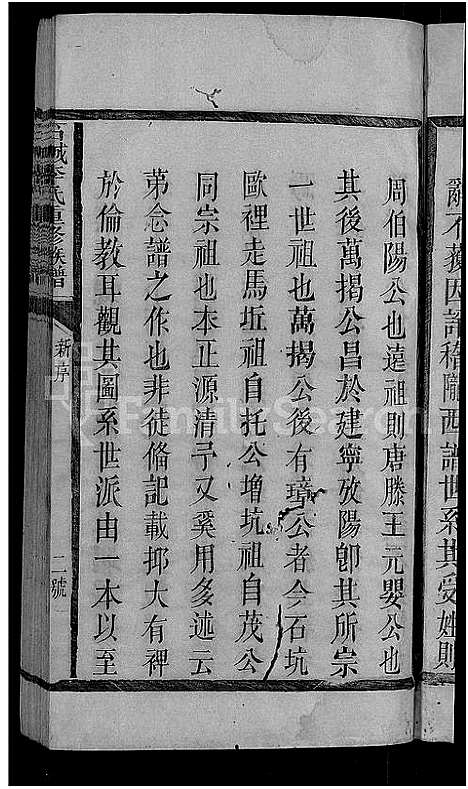 辭不獲因諸稽隴西譜世系其受姓則
周伯陽公也遠祖則唐滕王元嬰公也
其後萬揭公昌於建寧攸陽卽其所宗
一世祖也萬揭公後有璋公者今石坑
歐裡走馬坵祖自托公增坑祖自茂公
同宗祖也本正源清予又奚用多述云
苐念譜之作也非徒俻記載抑大有裨
於倫教耳觀其圖系世派由一本以至
城李氏重修族譜
新序
二號
FamilySearch